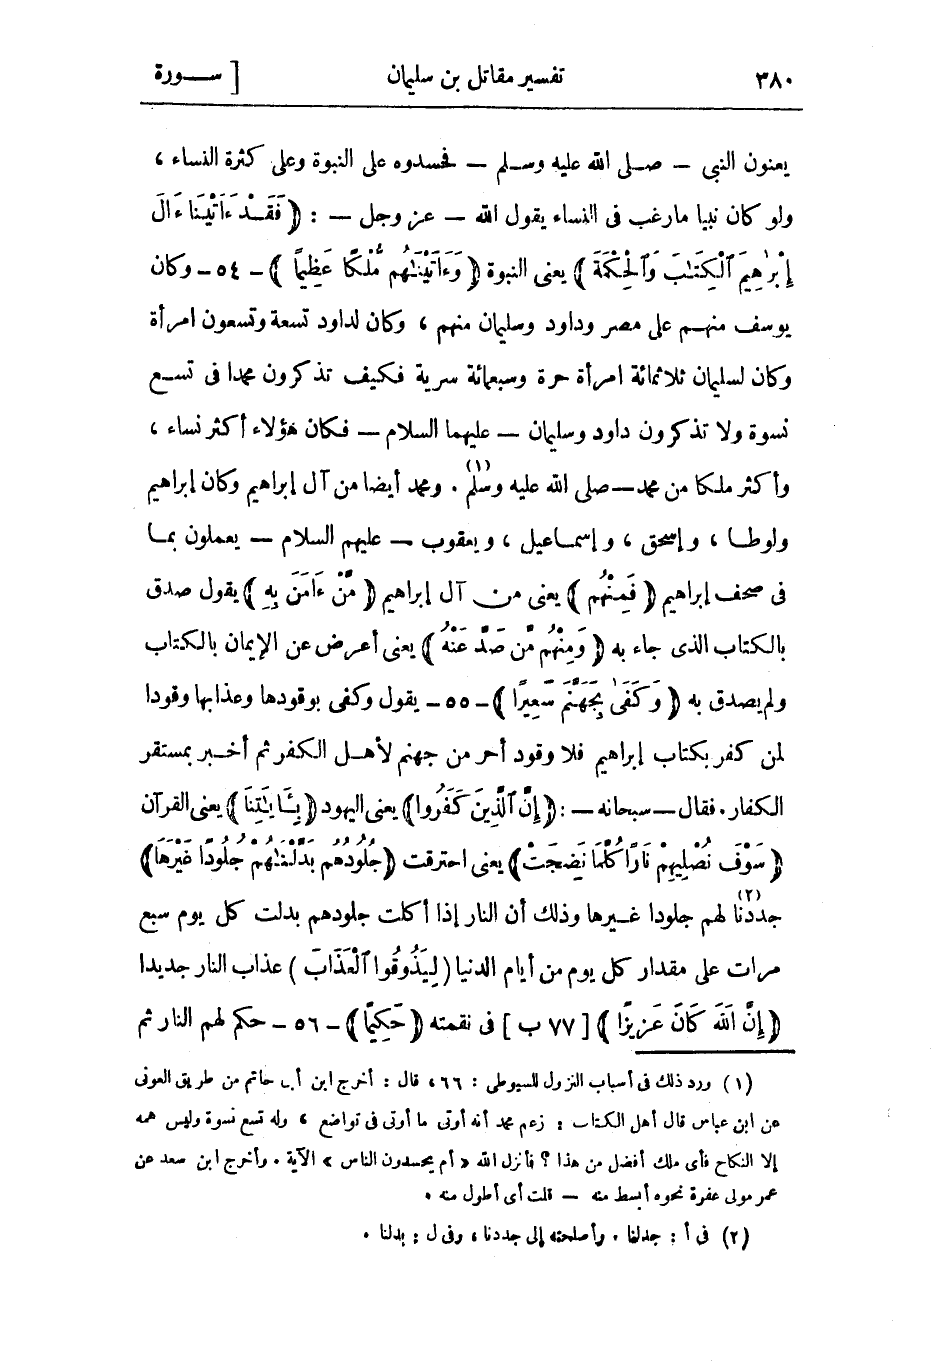 ٣٨٠ تفسير مقاتل بن سليمان [ ســورة
يعنون النبى – صلى الله عليه وسلم – فحسدوه على النبوة وعلى كثرة النساء ،
ولو كان نبيا مارغب فى النساء يقول الله – عز وجل – : ﴿ فَقَدْ ءَاتَيْنَا ءَالَ
إِبْرَٰهِيمَ ٱلْكِتَـٰبَ وَٱلْحِكْمَةَ ﴾ يعنى النبوة ﴿ وَءَاتَيْنَـٰهُم مُّلْكًا عَظِيمًا ﴾ – ٥٤ – وكان
يوسف منهم على مصر وداود وسليمان منهم ، وكان لداود تسعة وتسعون امرأة
وكان لسليمان ثلاثمائة امرأة حرة وسبعمائة سرية فكيف تذكرون محمدا فى تسع
نسوة ولا تذكرون داود وسليمان – عليهما السلام – فكان هؤلاء أكثر نساء ،
وأكثر ملكا من محمد – صلى الله عليه وسلم (١) . ومحمد أيضا من آل إبراهيم وكان إبراهيم
ولوطا ، وإسحق ، وإسماعيل ، ويعقوب – عليهم السلام – يعملون بما
فى صحف إبراهيم ﴿ فَمِنْهُم ﴾ يعنى من آل إبراهيم ﴿ مَّنْ ءَامَنَ بِهِ ﴾ يقول صدق
بالكتاب الذى جاء به ﴿ وَمِنْهُم مَّن صَدَّ عَنْهُ ﴾ يعنى أعرض عن الإيمان بالكتاب
ولم يصدق به ﴿ وَكَفَىٰ بِجَهَنَّمَ سَعِيرًا ﴾ – ٥٥ – يقول وكفى بوقودها وعذابها وقودا
لمن كفر بكتاب إبراهيم فلا وقود أحر من جهنم لأهل الكفر ثم أخبر بمستقر
الكفار . فقال – سبحانه – : ﴿ إِنَّ ٱلَّذِينَ كَفَرُوا ﴾ يعنى اليهود ﴿ بِـَٔايَـٰتِنَا ﴾ يعنى القرآن
﴿ سَوْفَ نُصْلِيهِمْ نَارًا كُلَّمَا نَضِجَتْ ﴾ يعنى احترقت ﴿ جُلُودُهُم بَدَّلْنَـٰهُمْ جُلُودًا غَيْرَهَا ﴾
جددنا (٢) لهم جلودا غيرها وذلك أن النار إذا أكلت جلودهم بدلت كل يوم سبع
مرات على مقدار كل يوم من أيام الدنيا ( لِيَذُوقُوا ٱلْعَذَابَ ) عذاب النار جديدا
﴿ إِنَّ ٱللَّهَ كَانَ عَزِيزًا ﴾ [ ٧٧ ب ] فى نقمته ﴿ حَكِيمًا ﴾ – ٥٦ – حكم لهم النار ثم
(١) ورد ذلك فى أسباب النزول للسيوطى : ٦٦ ، قال : أخرج ابن أبى حاتم من طريق العوفى
عن ابن عباس قال أهل الكتاب : زعم محمد أنه أوتى ما أوتى فى تواضع ، وله تسع نسوة وليس همه
إلا النكاح فأى ملك أفضل من هذا ؟ فأنزل الله « أم يحسدون الناس » الآية . وأخرج ابن سعد عن
عمر مولى عفرة نحوه أبسط منه – قلت أى أطول منه .
(٢) فى أ : جدلنا . وأصلحته إلى جددنا ، وفى ل : بدلنا .